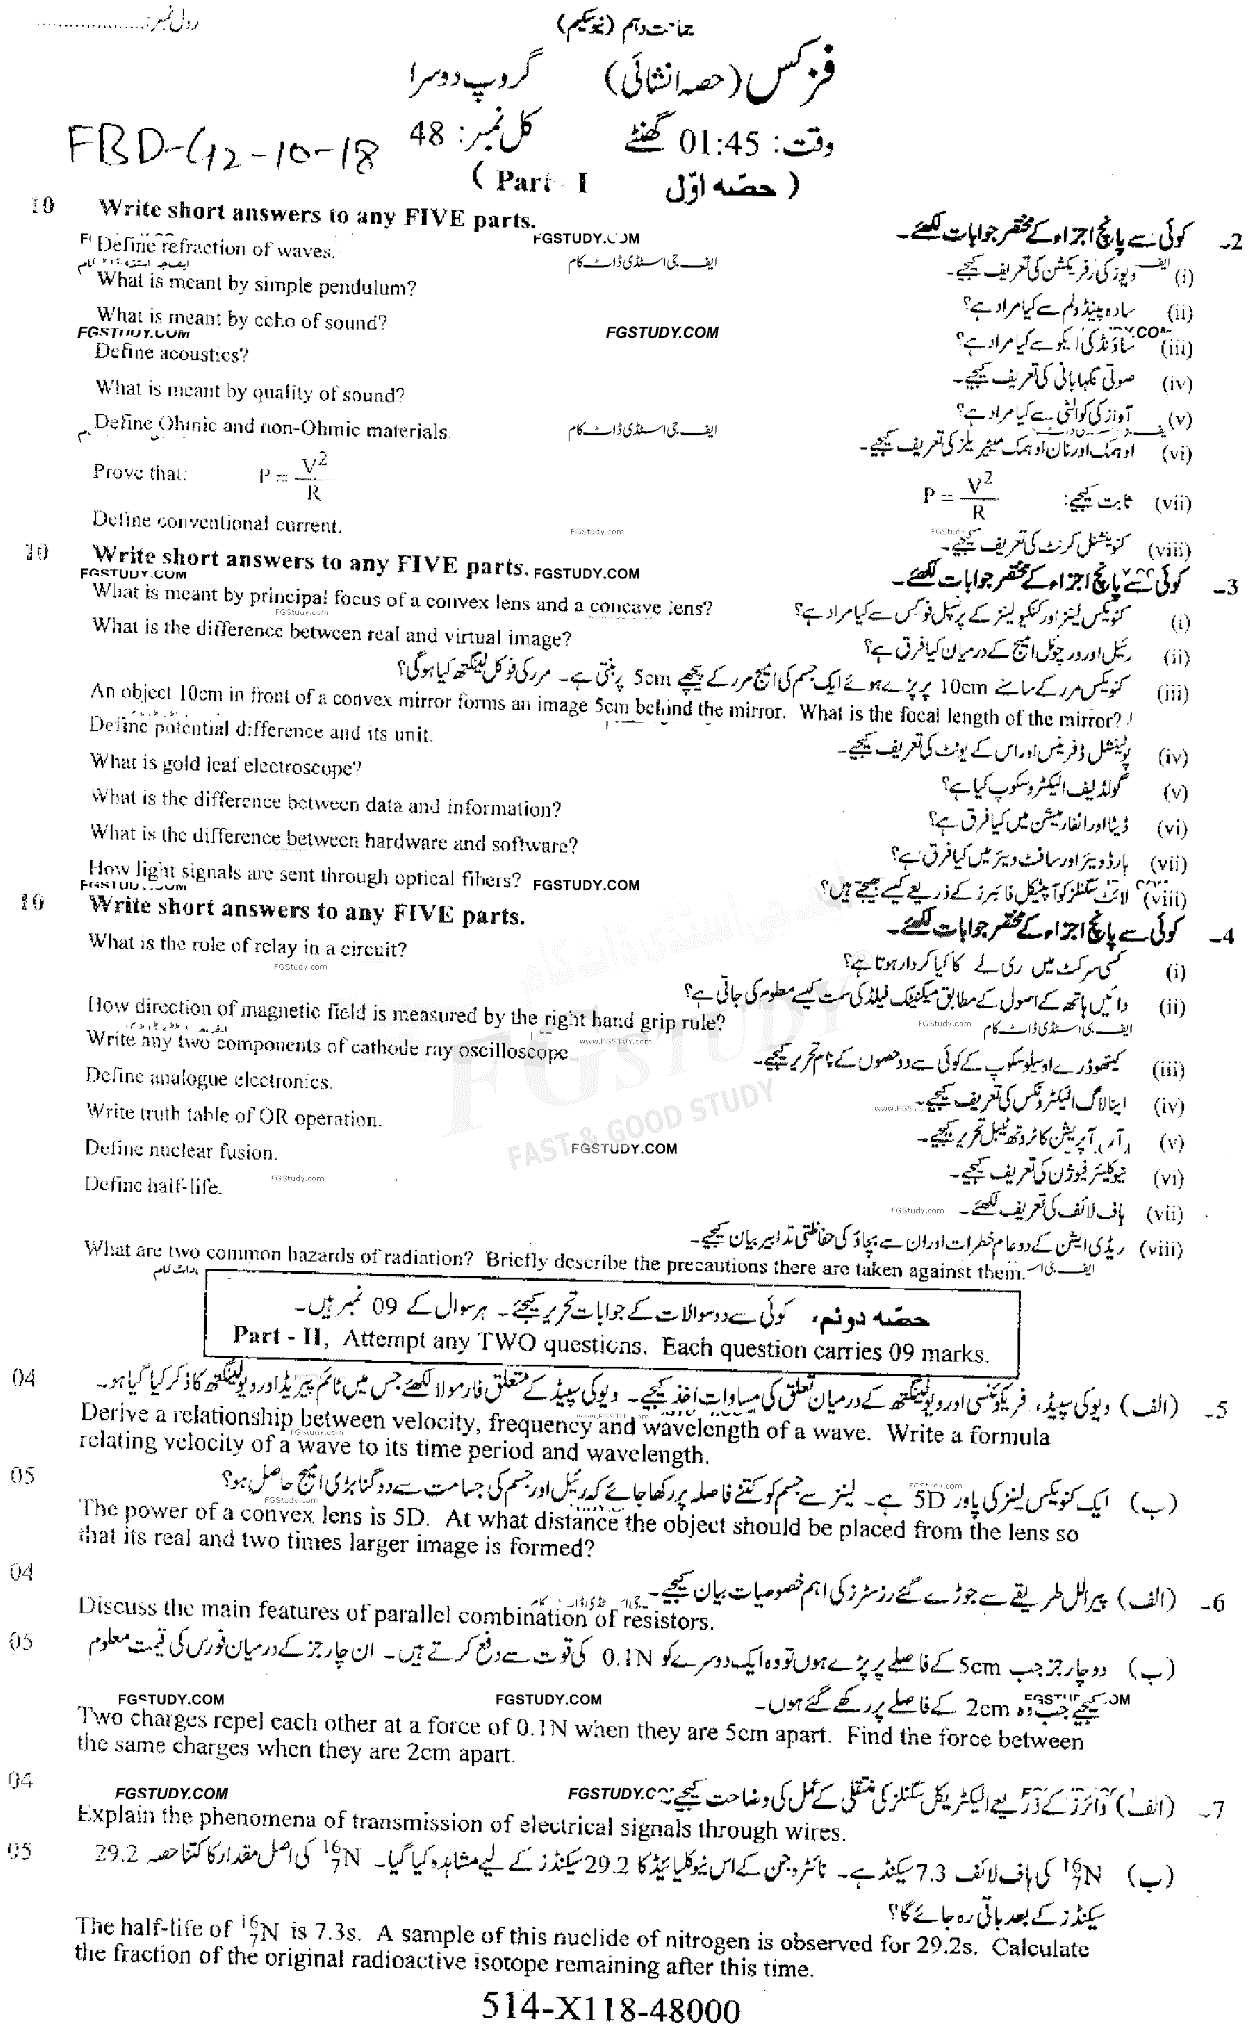 رول نمبر:..................
جماعت دہم (نیو سکیم)
فزکس (حصہ انشائی) گروپ دوسرا
وقت: 01:45 گھنٹے کل نمبر: 48
FBD-G12-10-18
(Part - I حصّہ اوّل)
10 Write short answers to any FIVE parts. 2- کوئی سے پانچ اجزاء کے مختصر جوابات لکھئے۔
FGSTUDY.COM
Define refraction of waves. (i) ویوز کی رفریکشن کی تعریف کیجیے۔
ایف جی اسٹڈی ڈاٹ کام
What is meant by simple pendulum? (ii) سادہ پینڈولم سے کیا مراد ہے؟
What is meant by echo of sound? (iii) ساؤنڈ کی ایکو سے کیا مراد ہے؟
FGSTUDY.COM FGSTUDY.COM
Define acoustics? (iv) صوتی نگہبانی کی تعریف کیجیے۔
What is meant by quality of sound? (v) آواز کی کوالٹی سے کیا مراد ہے؟
Define Ohmic and non-Ohmic materials. ایف جی اسٹڈی ڈاٹ کام (vi) اوہمک اور نان اوہمک میٹیریلز کی تعریف کیجیے۔
Prove that: P = V²/R (vii) ثابت کیجیے: P = V²/R
Define conventional current. FGStudy.com (viii) کنونشنل کرنٹ کی تعریف کیجیے۔
10 Write short answers to any FIVE parts. FGSTUDY.COM 3- کوئی سے پانچ اجزاء کے مختصر جوابات لکھئے۔
FGSTUDY.COM
What is meant by principal focus of a convex lens and a concave lens? (i) کنویکس لینز اور کنکیو لینز کے پرنسپل فوکس سے کیا مراد ہے؟
FGStudy.com
What is the difference between real and virtual image? (ii) رئیل اور ورچوئل امیج کے درمیان کیا فرق ہے؟
(iii) کنویکس مرر کے سامنے 10cm پر پڑے ہوئے ایک جسم کی امیج مرر کے پیچھے 5cm پر بنتی ہے۔ مرر کی فوکل لینگتھ کیا ہوگی؟
An object 10cm in front of a convex mirror forms an image 5cm behind the mirror. What is the focal length of the mirror?
Define potential difference and its unit. (iv) پوٹینشل ڈفرینس اور اس کے یونٹ کی تعریف کیجیے۔
What is gold leaf electroscope? (v) گولڈ لیف الیکٹروسکوپ کیا ہے؟
What is the difference between data and information? (vi) ڈیٹا اور انفارمیشن میں کیا فرق ہے؟
What is the difference between hardware and software? (vii) ہارڈ ویئر اور سافٹ ویئر میں کیا فرق ہے؟
How light signals are sent through optical fibers? FGSTUDY.COM (viii) لائٹ سگنلز کو آپٹیکل فائبرز کے ذریعے کیسے بھیجتے ہیں؟
10 Write short answers to any FIVE parts. 4- کوئی سے پانچ اجزاء کے مختصر جوابات لکھئے۔
What is the role of relay in a circuit? (i) کسی سرکٹ میں ری لے کا کیا کردار ہوتا ہے؟
FGStudy.com
(ii) دائیں ہاتھ کے اصول کے مطابق میگنیٹک فیلڈ کی سمت کیسے معلوم کی جاتی ہے؟
How direction of magnetic field is measured by the right hand grip rule? FGStudy.com ایف جی اسٹڈی ڈاٹ کام
Write any two components of cathode ray oscilloscope www.FGStudy.com (iii) کیتھوڈ رے اوسیلوسکوپ کے کوئی سے دو حصوں کے نام تحریر کیجیے۔
Define analogue electronics. (iv) اینالاگ الیکٹرونکس کی تعریف کیجیے۔
Write truth table of OR operation. (v) (آر) آپریشن کا ٹروتھ ٹیبل تحریر کیجیے۔
Define nuclear fusion. FGSTUDY.COM (vi) نیوکلیئر فیوژن کی تعریف کیجیے۔
FGSTUDY
FAST & GOOD STUDY
Define half-life. FGStudy.com FGStudy.com (vii) ہاف لائف کی تعریف لکھئے۔
(viii) ریڈی ایشن کے دو عام خطرات اور ان سے بچاؤ کی حفاظتی تدابیر بیان کیجیے۔
What are two common hazards of radiation? Briefly describe the precautions there are taken against them.
حصّہ دوئم، کوئی سے دو سوالات کے جوابات تحریر کیجئے۔ ہر سوال کے 09 نمبر ہیں۔
Part - II, Attempt any TWO questions. Each question carries 09 marks.
04 5- (الف) ویو کی سپیڈ، فریکوئنسی اور ویولینگتھ کے درمیان تعلق کی مساوات اخذ کیجیے۔ ویو کی سپیڈ کے متعلق فارمولا لکھئے جس میں ٹائم پیریڈ اور ویولینگتھ کا ذکر کیا گیا ہو۔
Derive a relationship between velocity, frequency and wavelength of a wave. Write a formula
relating velocity of a wave to its time period and wavelength.
05 (ب) ایک کنویکس لینز کی پاور 5D ہے۔ لینز سے جسم کو کتنے فاصلہ پر رکھا جائے کہ رئیل اور جسم کی جسامت سے دو گنا بڑی امیج حاصل ہو؟
The power of a convex lens is 5D. At what distance the object should be placed from the lens so
that its real and two times larger image is formed?
04 6- (الف) پیرالل طریقے سے جوڑے گئے رزسٹرز کی اہم خصوصیات بیان کیجیے۔
Discuss the main features of parallel combination of resistors.
05 (ب) دو چارجز جب 5cm کے فاصلے پر پڑے ہوں تو وہ ایک دوسرے کو 0.1N کی قوت سے دفع کرتے ہیں۔ ان چارجز کے درمیان فورس کی قیمت معلوم
کیجیے جب وہ 2cm کے فاصلے پر رکھے گئے ہوں۔
FGSTUDY.COM FGSTUDY.COM
Two charges repel each other at a force of 0.1N when they are 5cm apart. Find the force between
the same charges when they are 2cm apart.
04 FGSTUDY.COM 7- (الف) وائرز کے ذریعے الیکٹریکل سگنلز کی منتقلی کے عمل کی وضاحت کیجیے۔
Explain the phenomena of transmission of electrical signals through wires.
05 (ب) ¹⁶₇N کی ہاف لائف 7.3 سیکنڈ ہے۔ نائٹروجن کے اس نیوکلیائیڈ کا 29.2 سیکنڈز کے لیے مشاہدہ کیا گیا۔ ¹⁶₇N کی اصل مقدار کا کتنا حصہ 29.2
سیکنڈز کے بعد باقی رہ جائے گا؟
The half-life of ¹⁶₇N is 7.3s. A sample of this nuclide of nitrogen is observed for 29.2s. Calculate
the fraction of the original radioactive isotope remaining after this time.
514-X118-48000